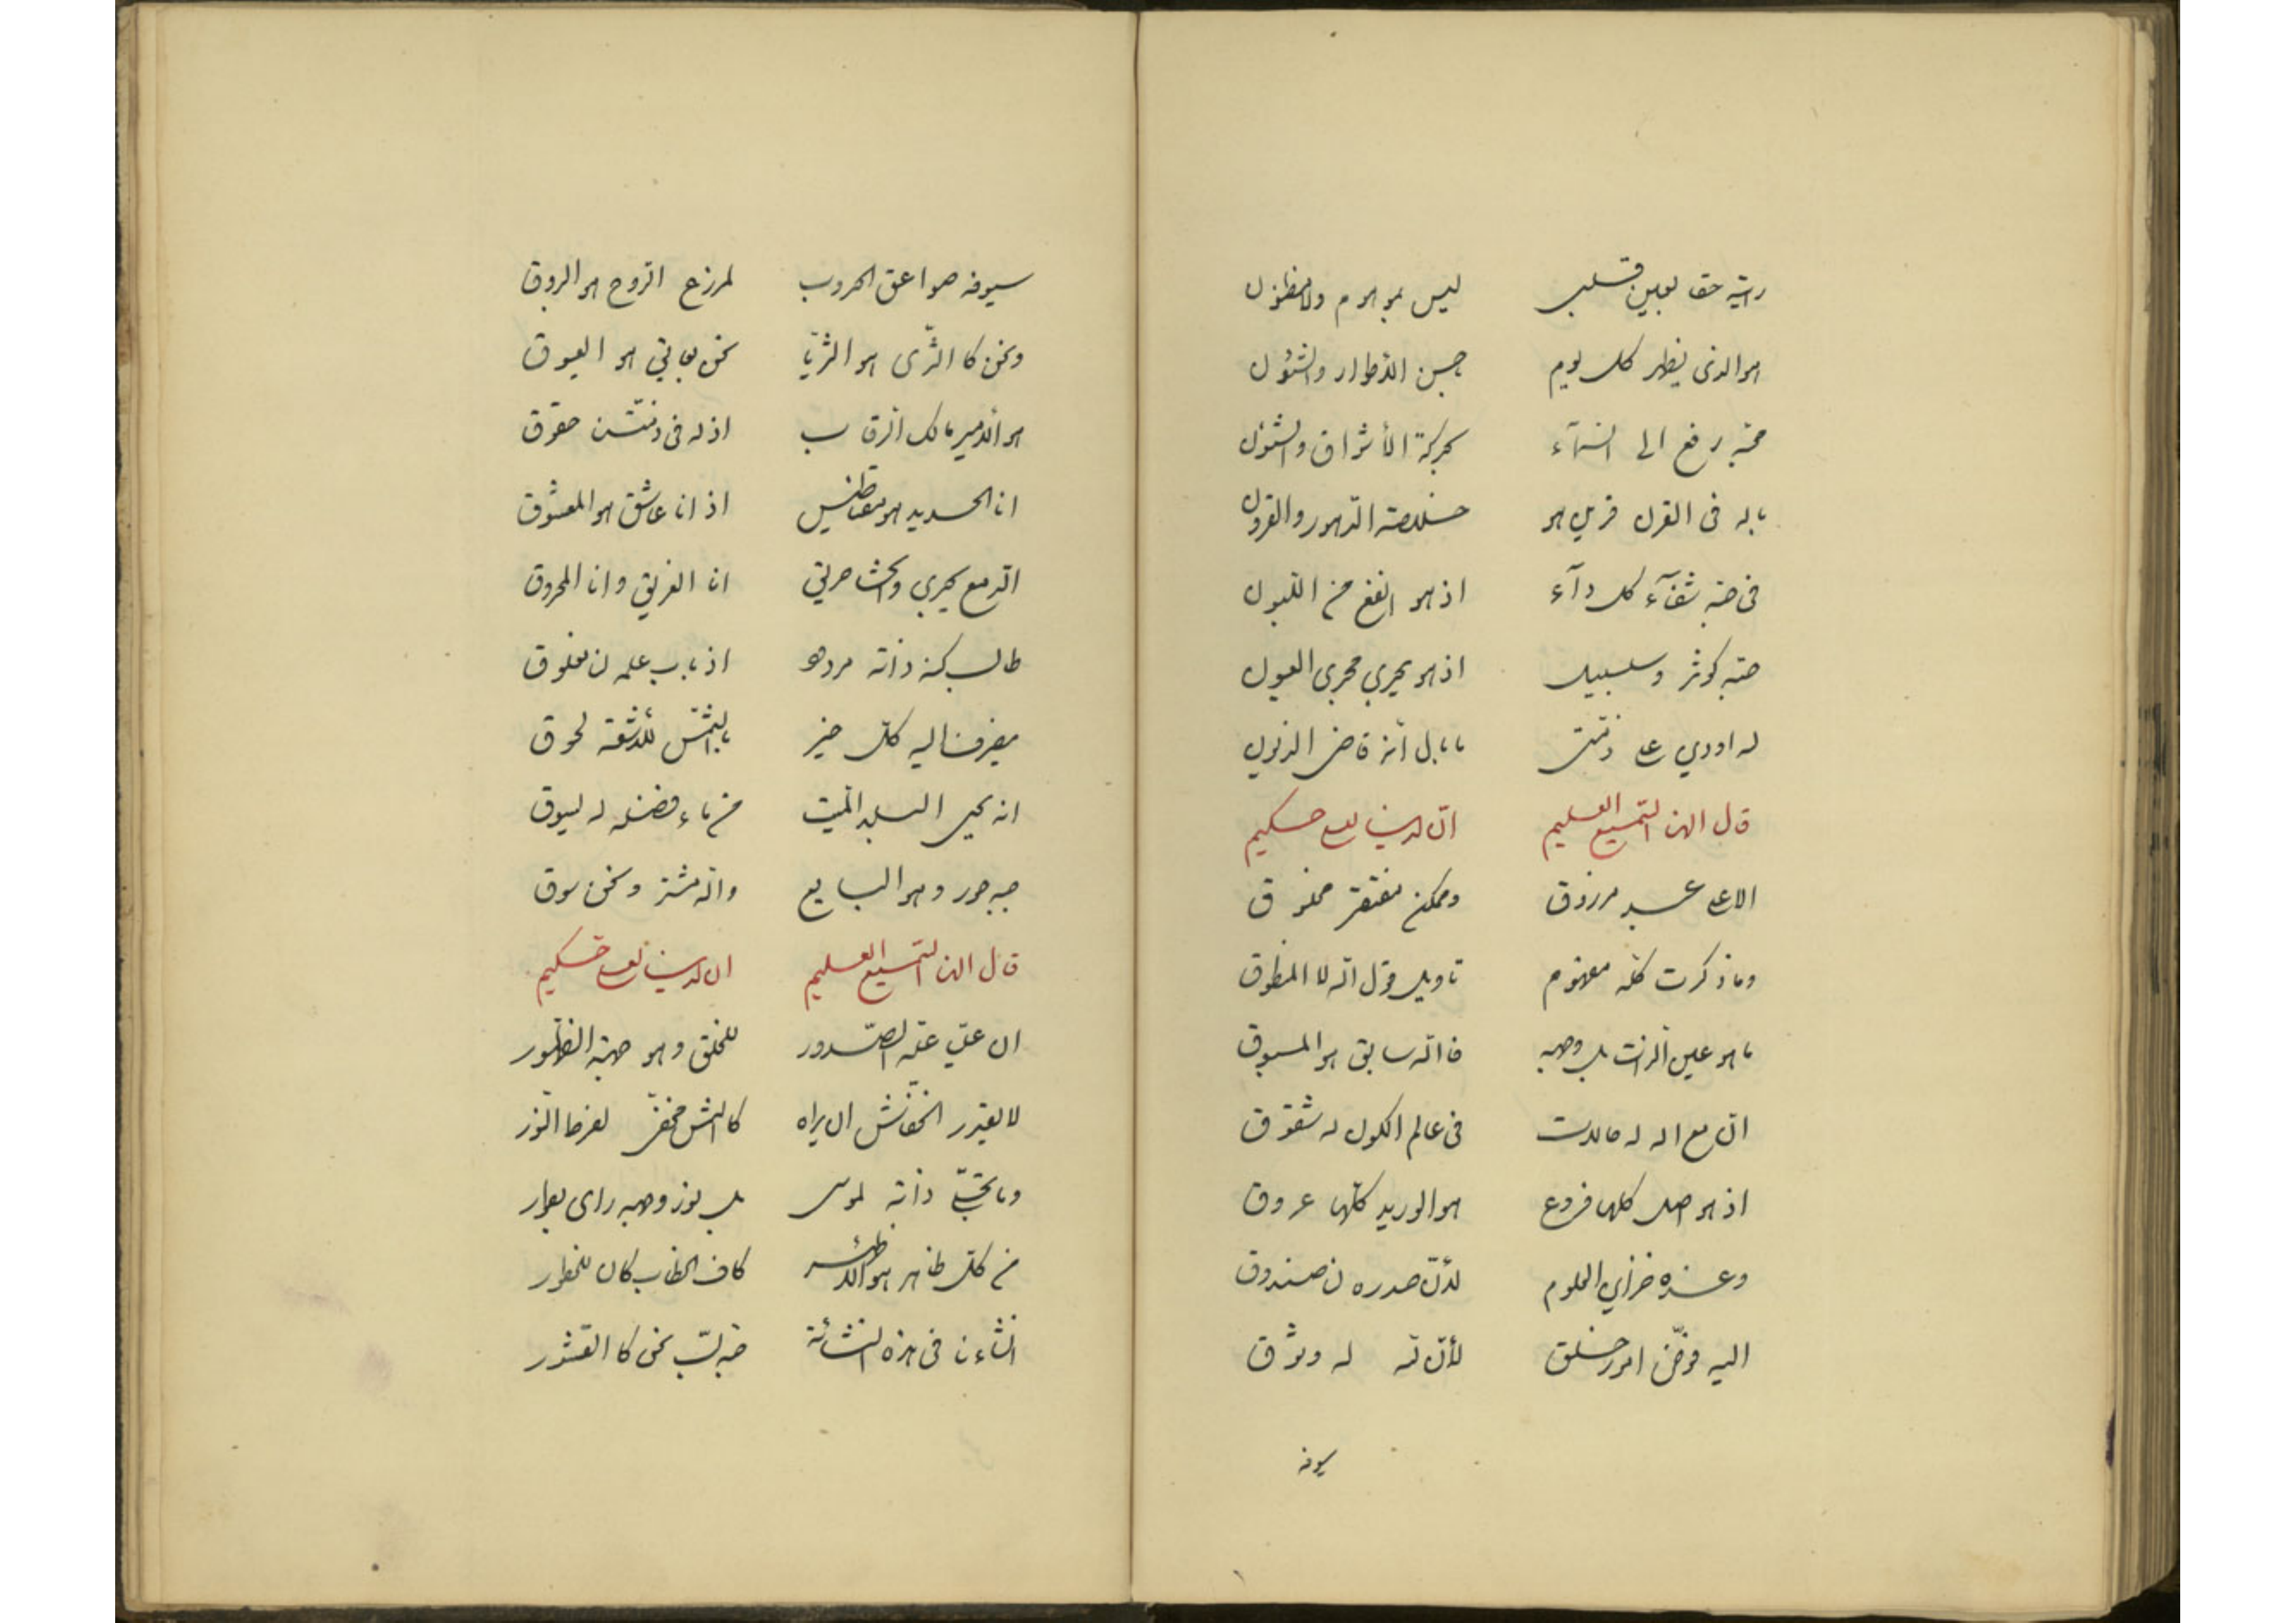 رايته حقا بعين قلبي ليس بموهوم ولا مظنون
هو الذي يظهر كل يوم بحسن الأطوار والشئون
محبه رفع الى السماء كحركة الأشراق والشئون
ما له في القرن قرين هو خلاصة الدهور والقرون
في حبه شفآء كل دآء اذ هو انفع من اللبون
حبه كوثر وسلسبيل اذ هو يجري مجرى العيون
له اودي على ذمتي ما بال أنه قاضى الديون
قال الهنا السميع العليم ان لدينا لعلي حكيم
الا علي عبد مرزوق وممكن مفتقر مخلوق
وما ذكرت كله مفهوم تاويل قول انه لا المنطوق
ما هو عين الذات بل وجهه فانه سابق هو المسبوق
ان مع اله له حالات في عالم الكون له شقوق
اذ هو اصل كلها فروع هو الوريد كلها عروق
وعنده خزاين العلوم لأن صدره لنا صندوق
اليه فوض امور خلق لأن لله له وثوق
سيوفه
سيوفه صواعق الحروب لمرزح الروح هو الروق
ونحن كالثرى هو الثريا نحن بعاني هو العيوق
هو الأمير مالك الرقاب اذ له في ذمتنا حقوق
انا الحديد هو مغناطيس اذ انا عاشق هو المعشوق
الدمع يجري والحشا حرقتي انا الغريق وانا المحروق
طالب كنه ذاته مردود اذ باب علمه لنا مغلوق
مصرفنا اليه كل خير بالشمس للأشعة لحوق
انه يحيى البلد الميت من ماء فضله له يسوق
حبه حور وهو البايع والله مشتر ونحن سوق
قال الهنا السميع العليم ان لدينا لعلي حكيم
ان علي علة الصدور للخلق وهو جهة الظهور
لا يقدر الخفاش ان يراه كالشمس مختفى لفرط النور
وما تجلى ذاته لموسى بل نور وجهه راى بطور
من كل ظاهر هو الأظهر كاف الخطاب كان للحضور
انشاءنا في هذه النشائة حبه لب نحن كالقشور